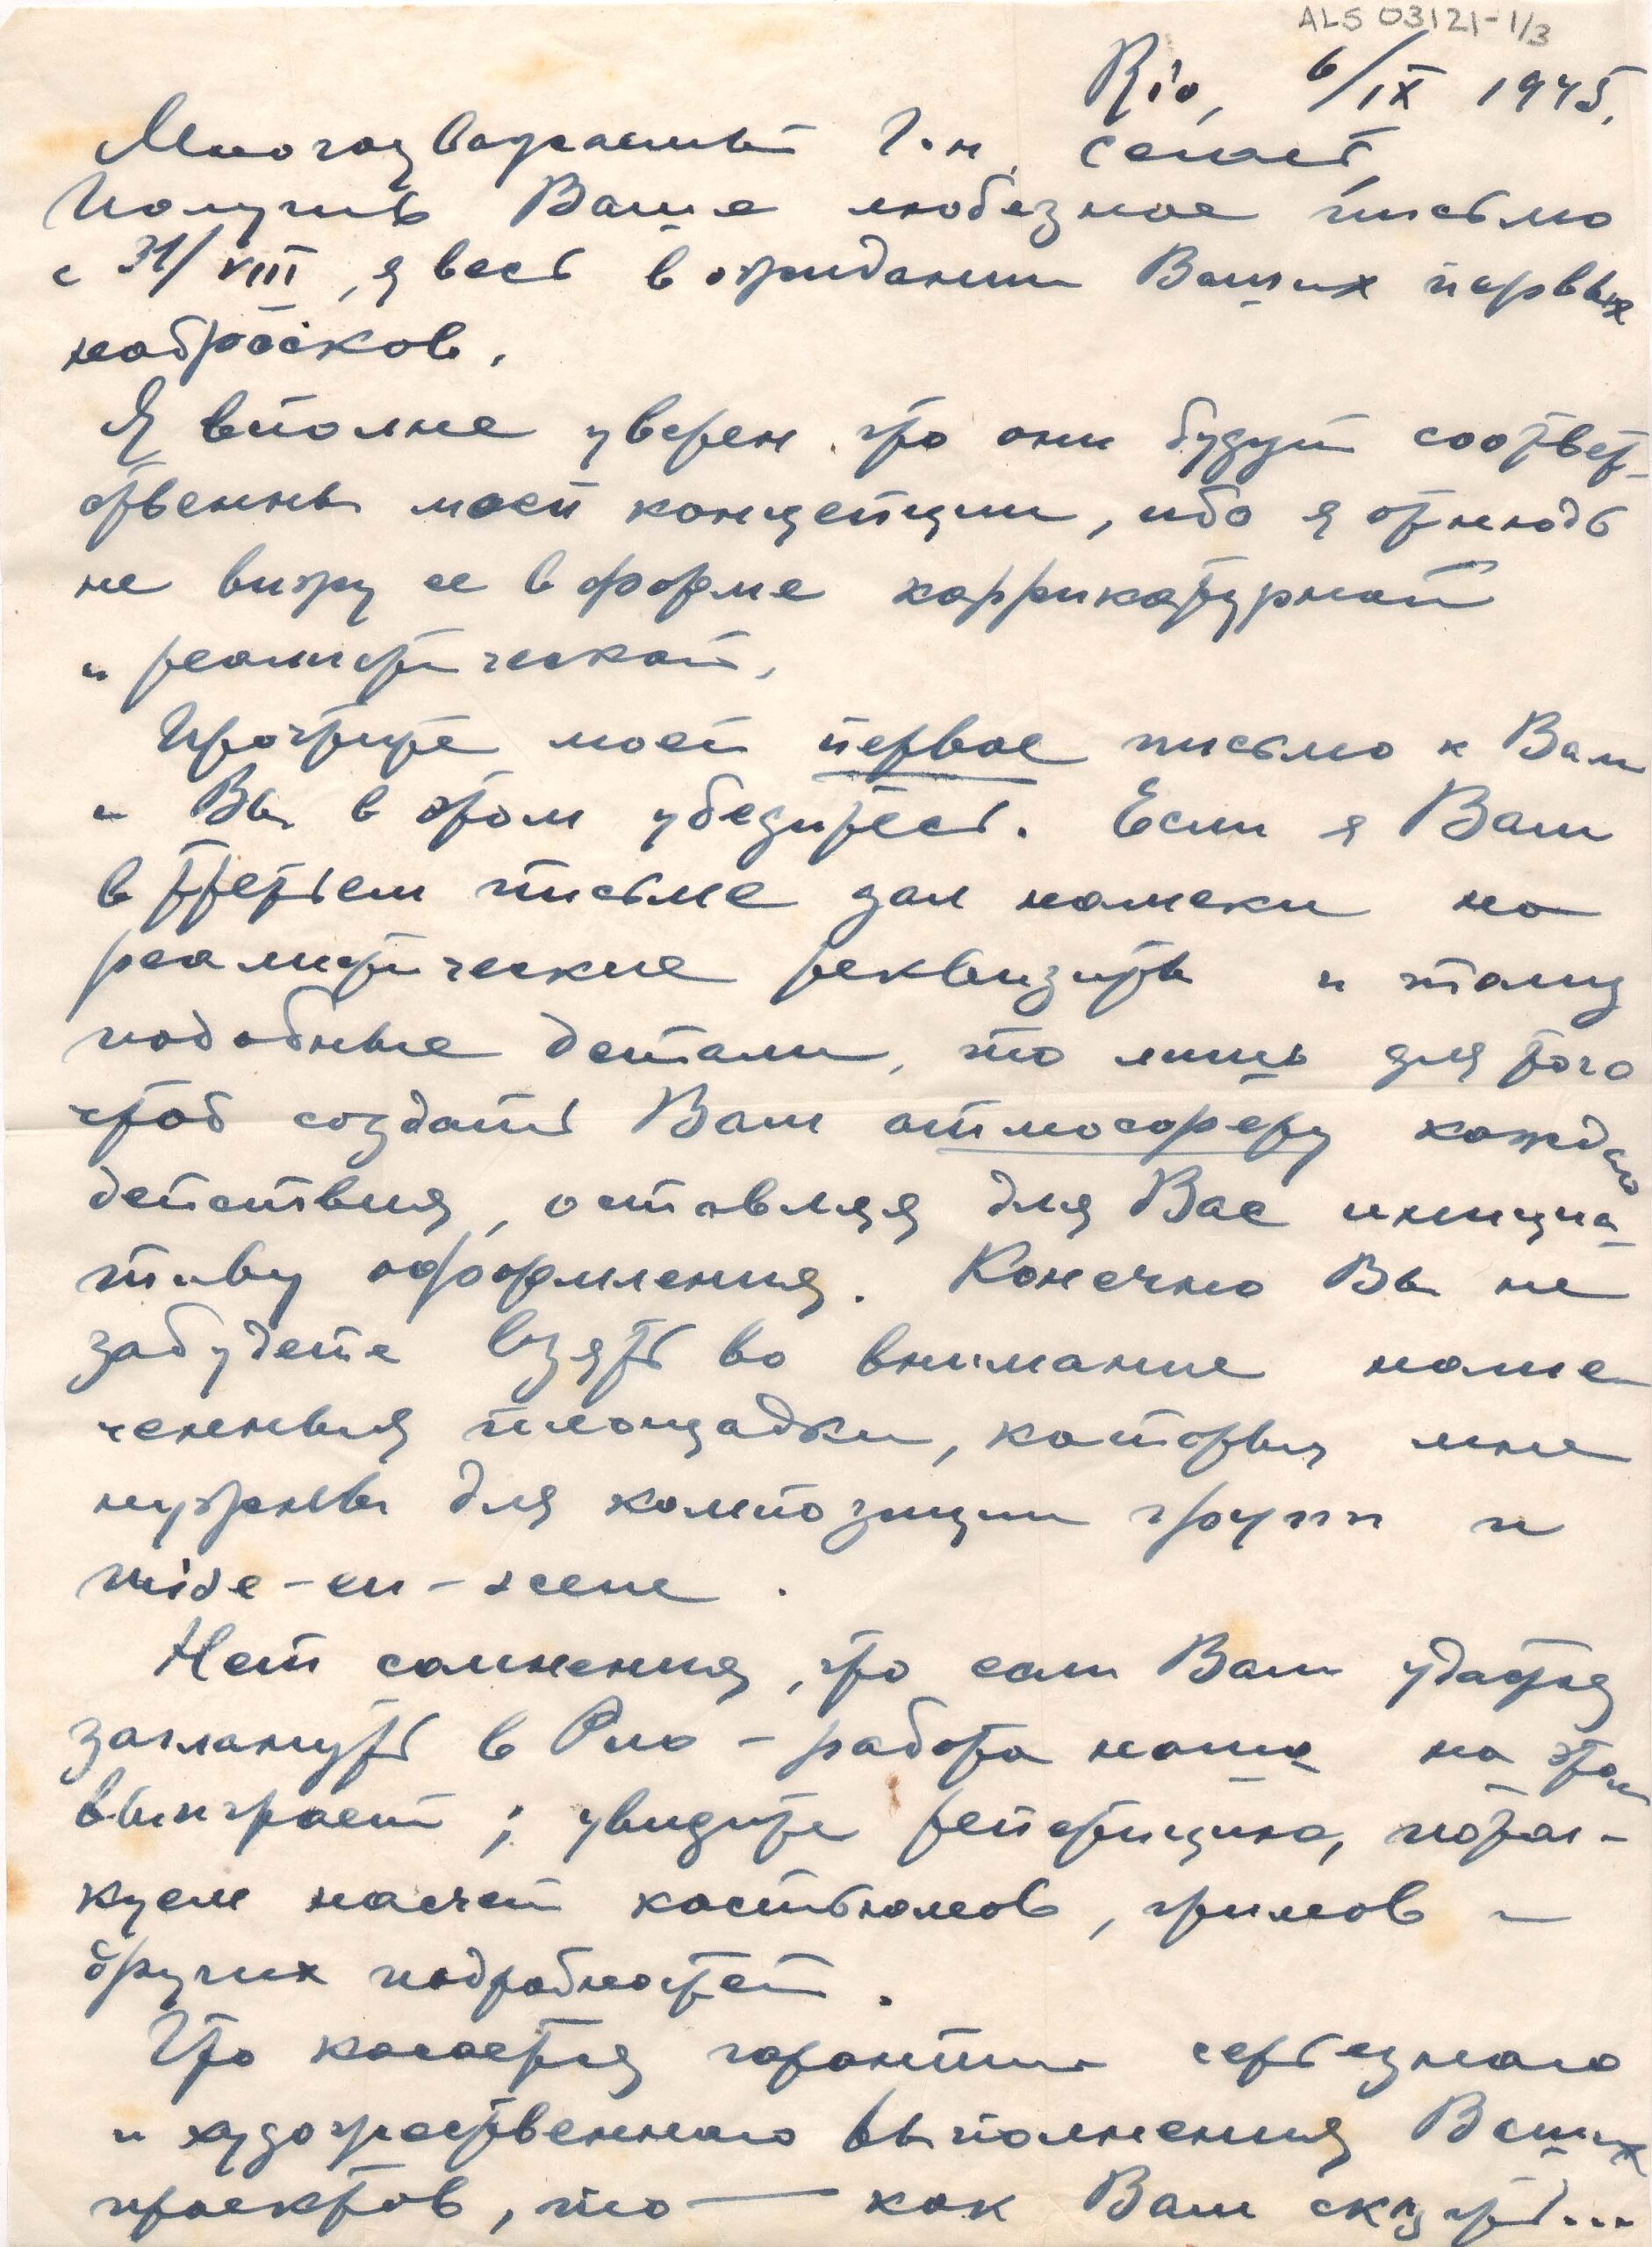 ALS 03121-1/3
Rio, 6/IX 1945.
Многоуважаемый Г-н. Сегал,
Получив Ваше любезное письмо
с 31/VIII, я весь в ожидании Ваших первых
набросков.
Я вполне уверен что они будут соответ-
ственны моей концепции, ибо я отнюдь
не вижу ее в форме каррикатурной
и реалистической.
Прочтите моё первое письмо к Вам
и Вы в этом убедитесь. Если я Вам
в третьем письме дал намеки на
реалистические реквизиты и тому
подобные детали, то лишь для того
чтоб создать Вам атмосферу каждаго
действия, оставляя для Вас инициа-
тиву оформления. Конечно Вы не
забудете взять во внимание наме
ченныя площадки, которыя мне
нужны для композиции групп и
mise-en-scene.
Нет сомнения, что если Вам удастся
заглянуть в Рио – работа наша на этом
выиграет; увидите репетицию, потол-
куем насчет костюмов, гримов и
других подробностей.
Что касается гарантии серьезнаго
и художественнаго выполнения Ваших
проектов, то — как Вам сказать...